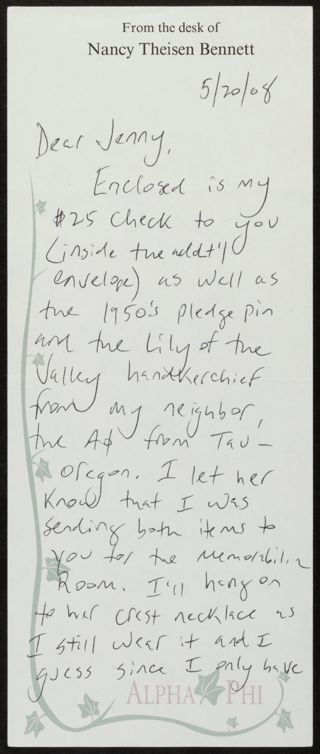 From the desk of
Nancy Theisen Bennett
5/20/08
Dear Jenny,
Enclosed is my
$25 check to you
(inside the addt'l
envelope) as well as
the 1950's pledge pin
and the Lily of the
Valley handkerchief
from my neighbor,
the AΦ from Tau-
Oregon. I let her
know that I was
sending both items to
you for the Memorabilia
Room. I'll hang on
to her crest necklace as
I still wear it and I
guess since I only have
ALPHA PHI